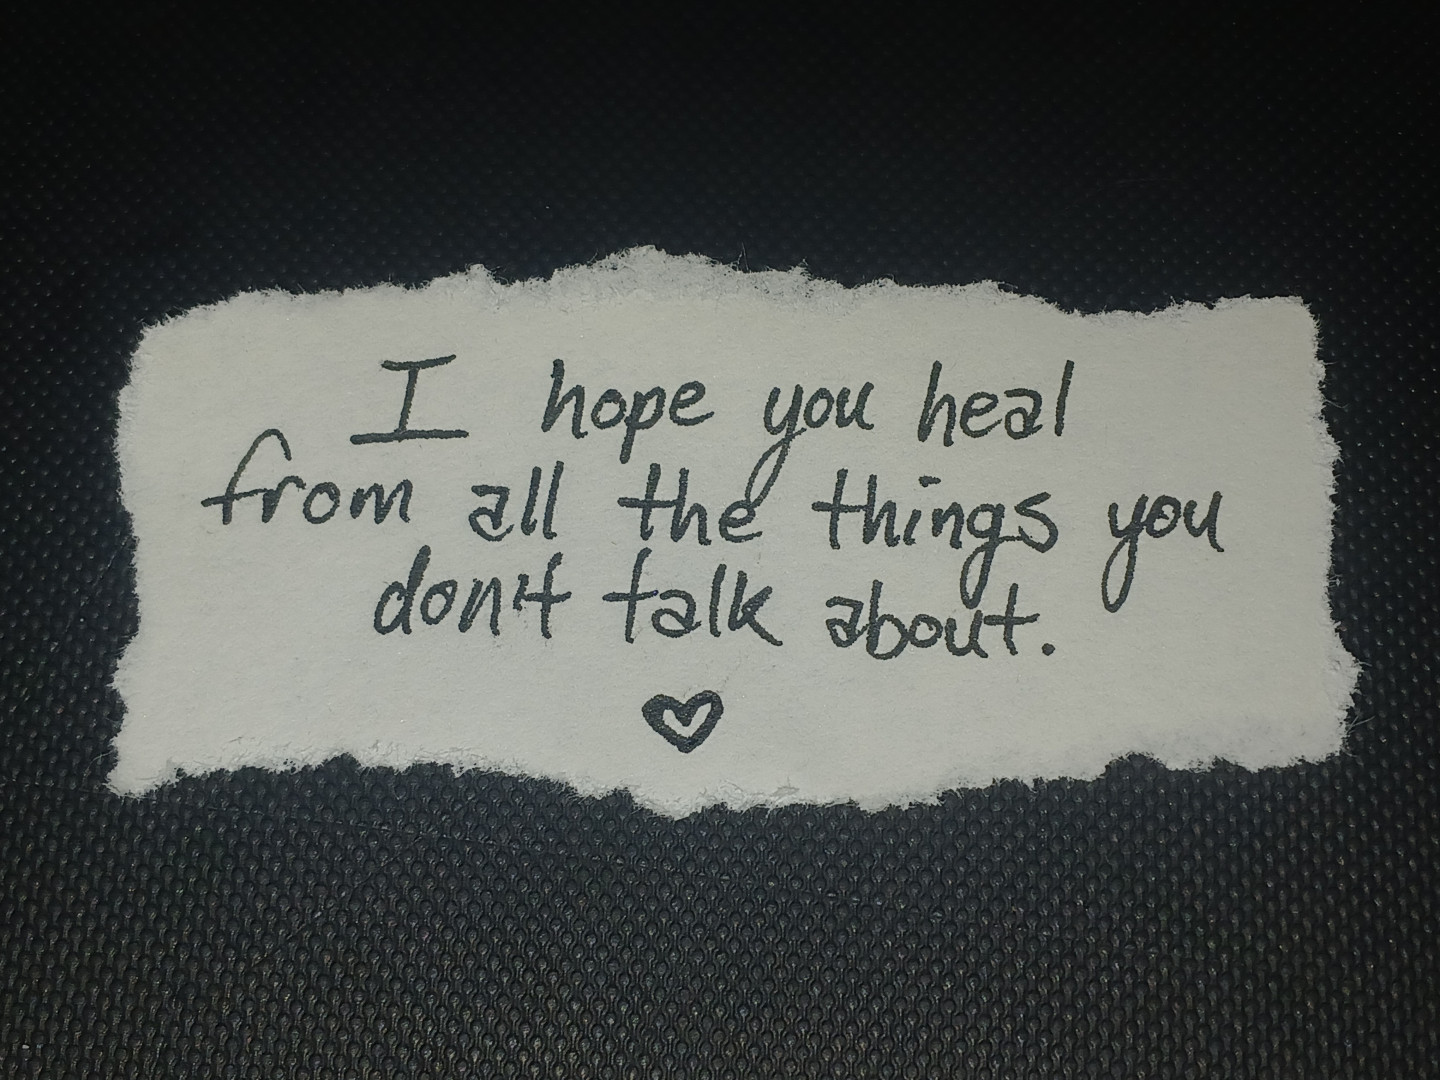 I hope you heal
from all the things you
don't talk about.
♡